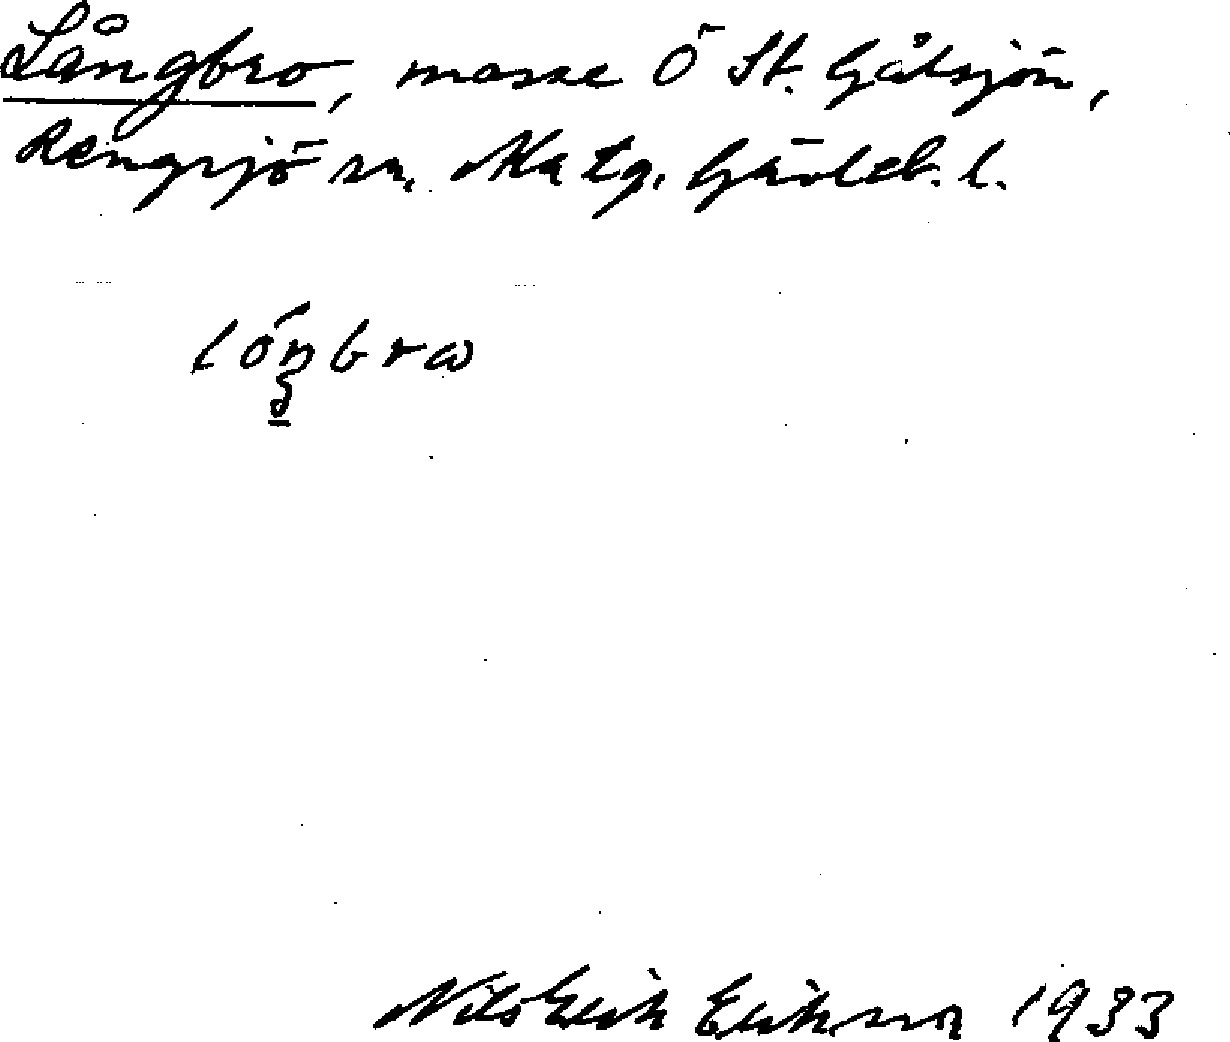 Långbro, mosse Ö St. Gålsjön,
Rengsjö sn. Ala tg. Gävleb. l.
lóŋbrω
Nils Erik Eriksson 1933